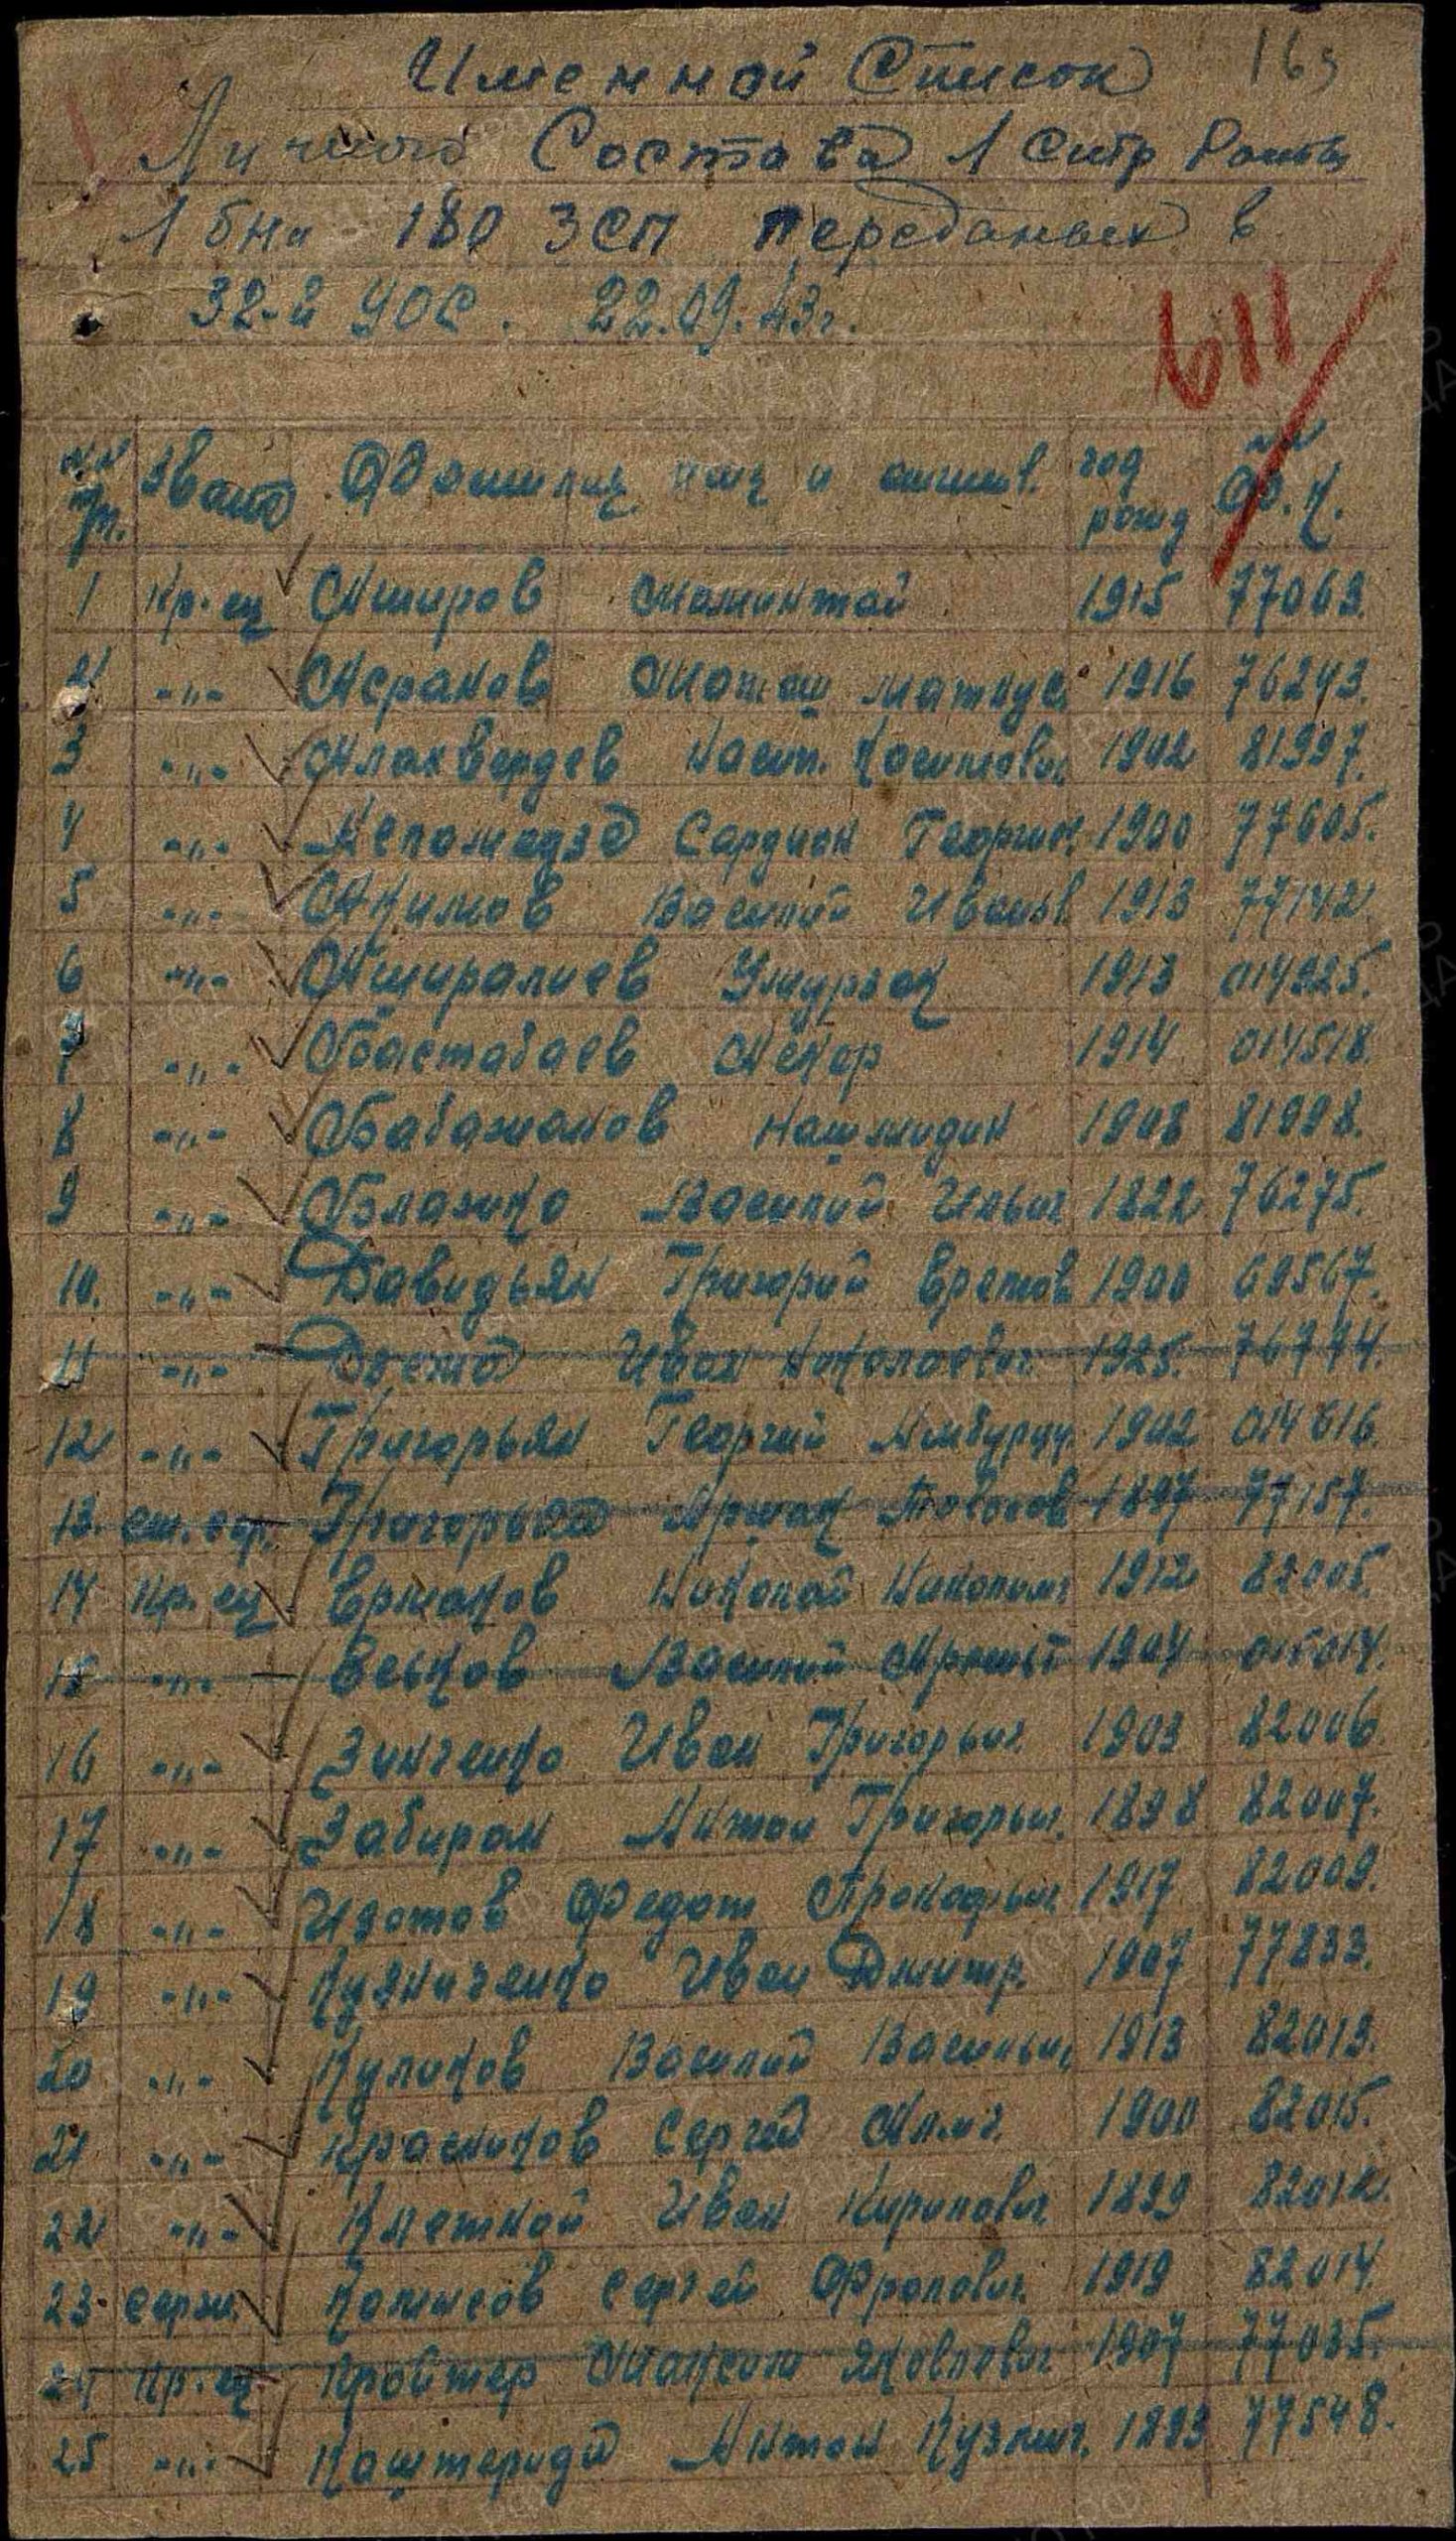 Именной Список 163
Личного Состава 1 Стр Роты
1 бна 180 ЗСП переданных в
32-й УОС. 22.09.43г.
611
№№ пп. Звание Фамилия имя и отчеств. год рожд №№ Кр. к.
1 Кр-ец Аширов Маминтай 1915 77063.
2 -"- Асраков 1916 76243.
3 -"- Алахвердев Касим. Касимович 1902 81997.
4 -"- Сардион Георгие. 1900 77605.
5 -"- Акимов Василий Иванов 1913 77142.
6 -"- Аширалиев Умурзак 1913 014925.
7 -"- Бастабаев 1914 014518.
8 -"- Бабажанов Нашмидин 1908 81998.
9 -"- Блажко Василий Ильич 1822 76275.
10. -"- Давидьян Григорий Еремов 1900 69567.
11 -"- Иван Николаевич 1925. 76774.
12 -"- Григорьян Георгий 1902 014616.
13. ст. сер. Григорьян Аршак 1897 77157.
14 Кр. ец Ермаков Николай Николаев 1912 82005.
15 -"- Еськов Василий 1904 015014.
16 -"- Зинченко Иван Григорьич 1903 82006.
17 -"- Забиран Антон Григорьич. 1898 82007.
18 -"- Изотов Федот Прокофьич 1917 82009.
19 -"- Кузниченко Иван Дмитр. 1907 77833.
20 -"- Куликов Василий Васильич 1913 82013.
21 -"- Красиков Сергей 1900 82015.
22 -"- Иван Кирилович 1899 82012.
23. серж. Комисов Сергей Фролович 1919 82014.
24 Кр. ец Кройтер Максим Яковлевич 1907 77035.
25 -"- Каштериди Антон Кузмич. 1893 77548.